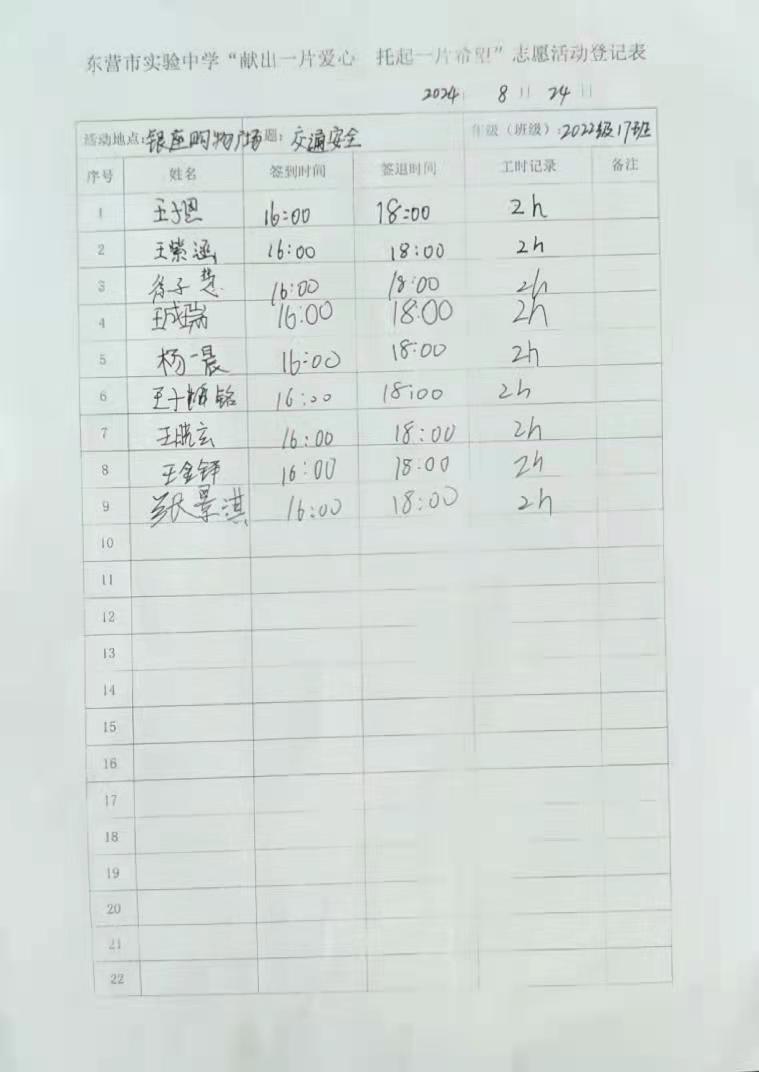 东营市实验中学“献出一片爱心 托起一片希望”志愿活动登记表
2024年 8月 24日
活动地点:银座购物广场 题:交通安全 年级(班级):2022级17班
序号 姓名 签到时间 签退时间 工时记录 备注
1 王子恩 16:00 18:00 2h
2 王紫涵 16:00 18:00 2h
3 徐子慧 16:00 18:00 2h
4 王成瑞 16:00 18:00 2h
5 杨一晨 16:00 18:00 2h
6 16:00 18:00 2h
7 王晓玄 16:00 18:00 2h
8 王金铎 16:00 18:00 2h
9 张景淇 16:00 18:00 2h
10
11
12
13
14
15
16
17
18
19
20
21
22